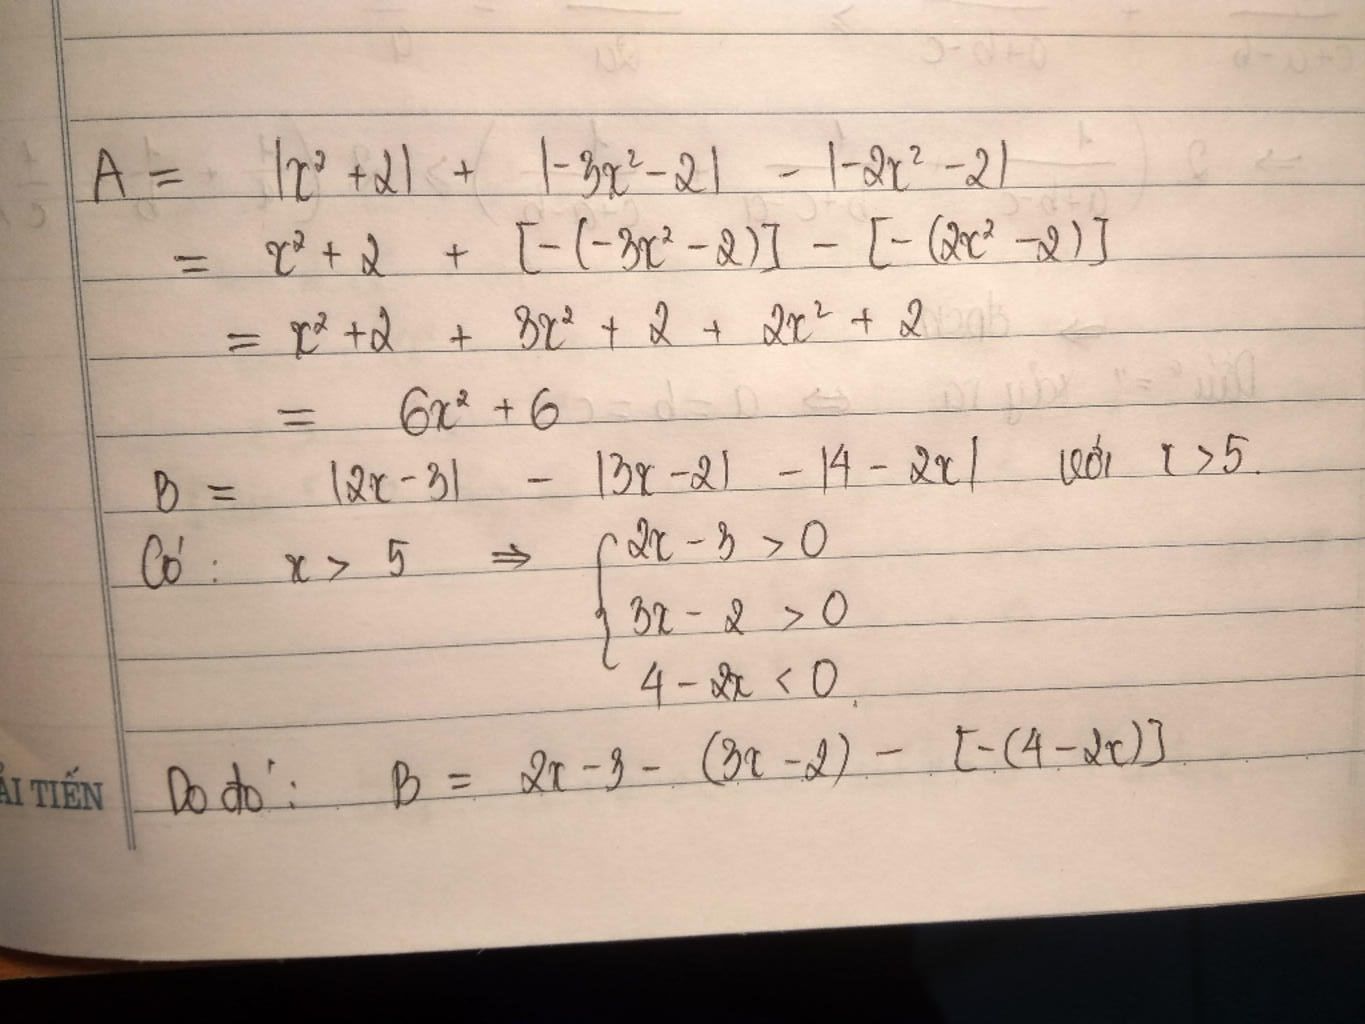 A = |x² + 2| + |-3x² - 2| - |-2x² - 2|
= x² + 2 + [-(-3x² - 2)] - [-(2x² - 2)]
= x² + 2 + 3x² + 2 + 2x² + 2
= 6x² + 6
B = |2x - 3| - |3x - 2| - |4 - 2x| với x > 5.
Có: x > 5 ⇒ { 2x - 3 > 0
3x - 2 > 0
4 - 2x < 0
Do đó: B = 2x - 3 - (3x - 2) - [-(4 - 2x)]
ẢI TIẾN